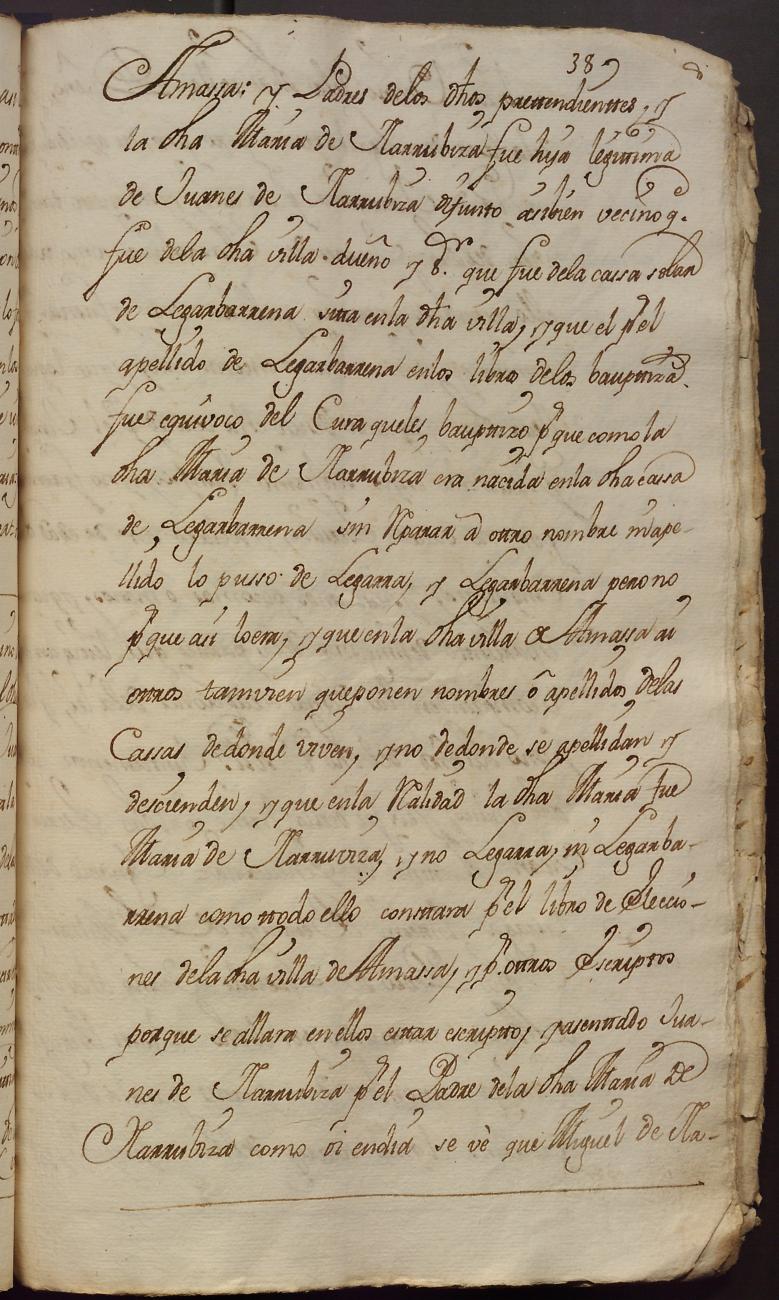 38
Amassa: y Padres delos dhos prettendienttes, y
la dha Maria de Narrubiza fue hija legitima
de Juanes de Narrubiza difunto asibien vecino q.
fue dela dha villa dueño y Sr. que fue dela cassa solar
de Legarbarrena sitta enla dha villa, y que el pr el
apellido de Legarbarrena enlos libros delos bauptiza.
fue equivoco del Cura queles bauptizo pr que como la
dha Maria de Narrubiza era nacida enla dha cassa
de Legarbarrena sin Rparar â otro nombre ni ape-
llido lo pusso de Legarra, y Legarbarrena pero no
pr que asi loera, y que enla dha villa de Amassa ai
otros tamvien queponen nombres ô apellidos delas
Cassas dedonde viven, y no dedonde se apellidan y
descienden, y que enla Ralidad la dha Maria fue
Maria de Narruviza, y no Legarra, ni Legarba-
rrena como ttodo ello consttara pr el libro de Eleccio-
nes dela dha villa de Amassa, y pr. otros Escriptos
porque se allara en ellos estar escripto, y asenttado Jua-
nes de Narrubiza pr el Padre dela dha Maria de
Narrubiza como oi endia se vè que Miguel de Na-